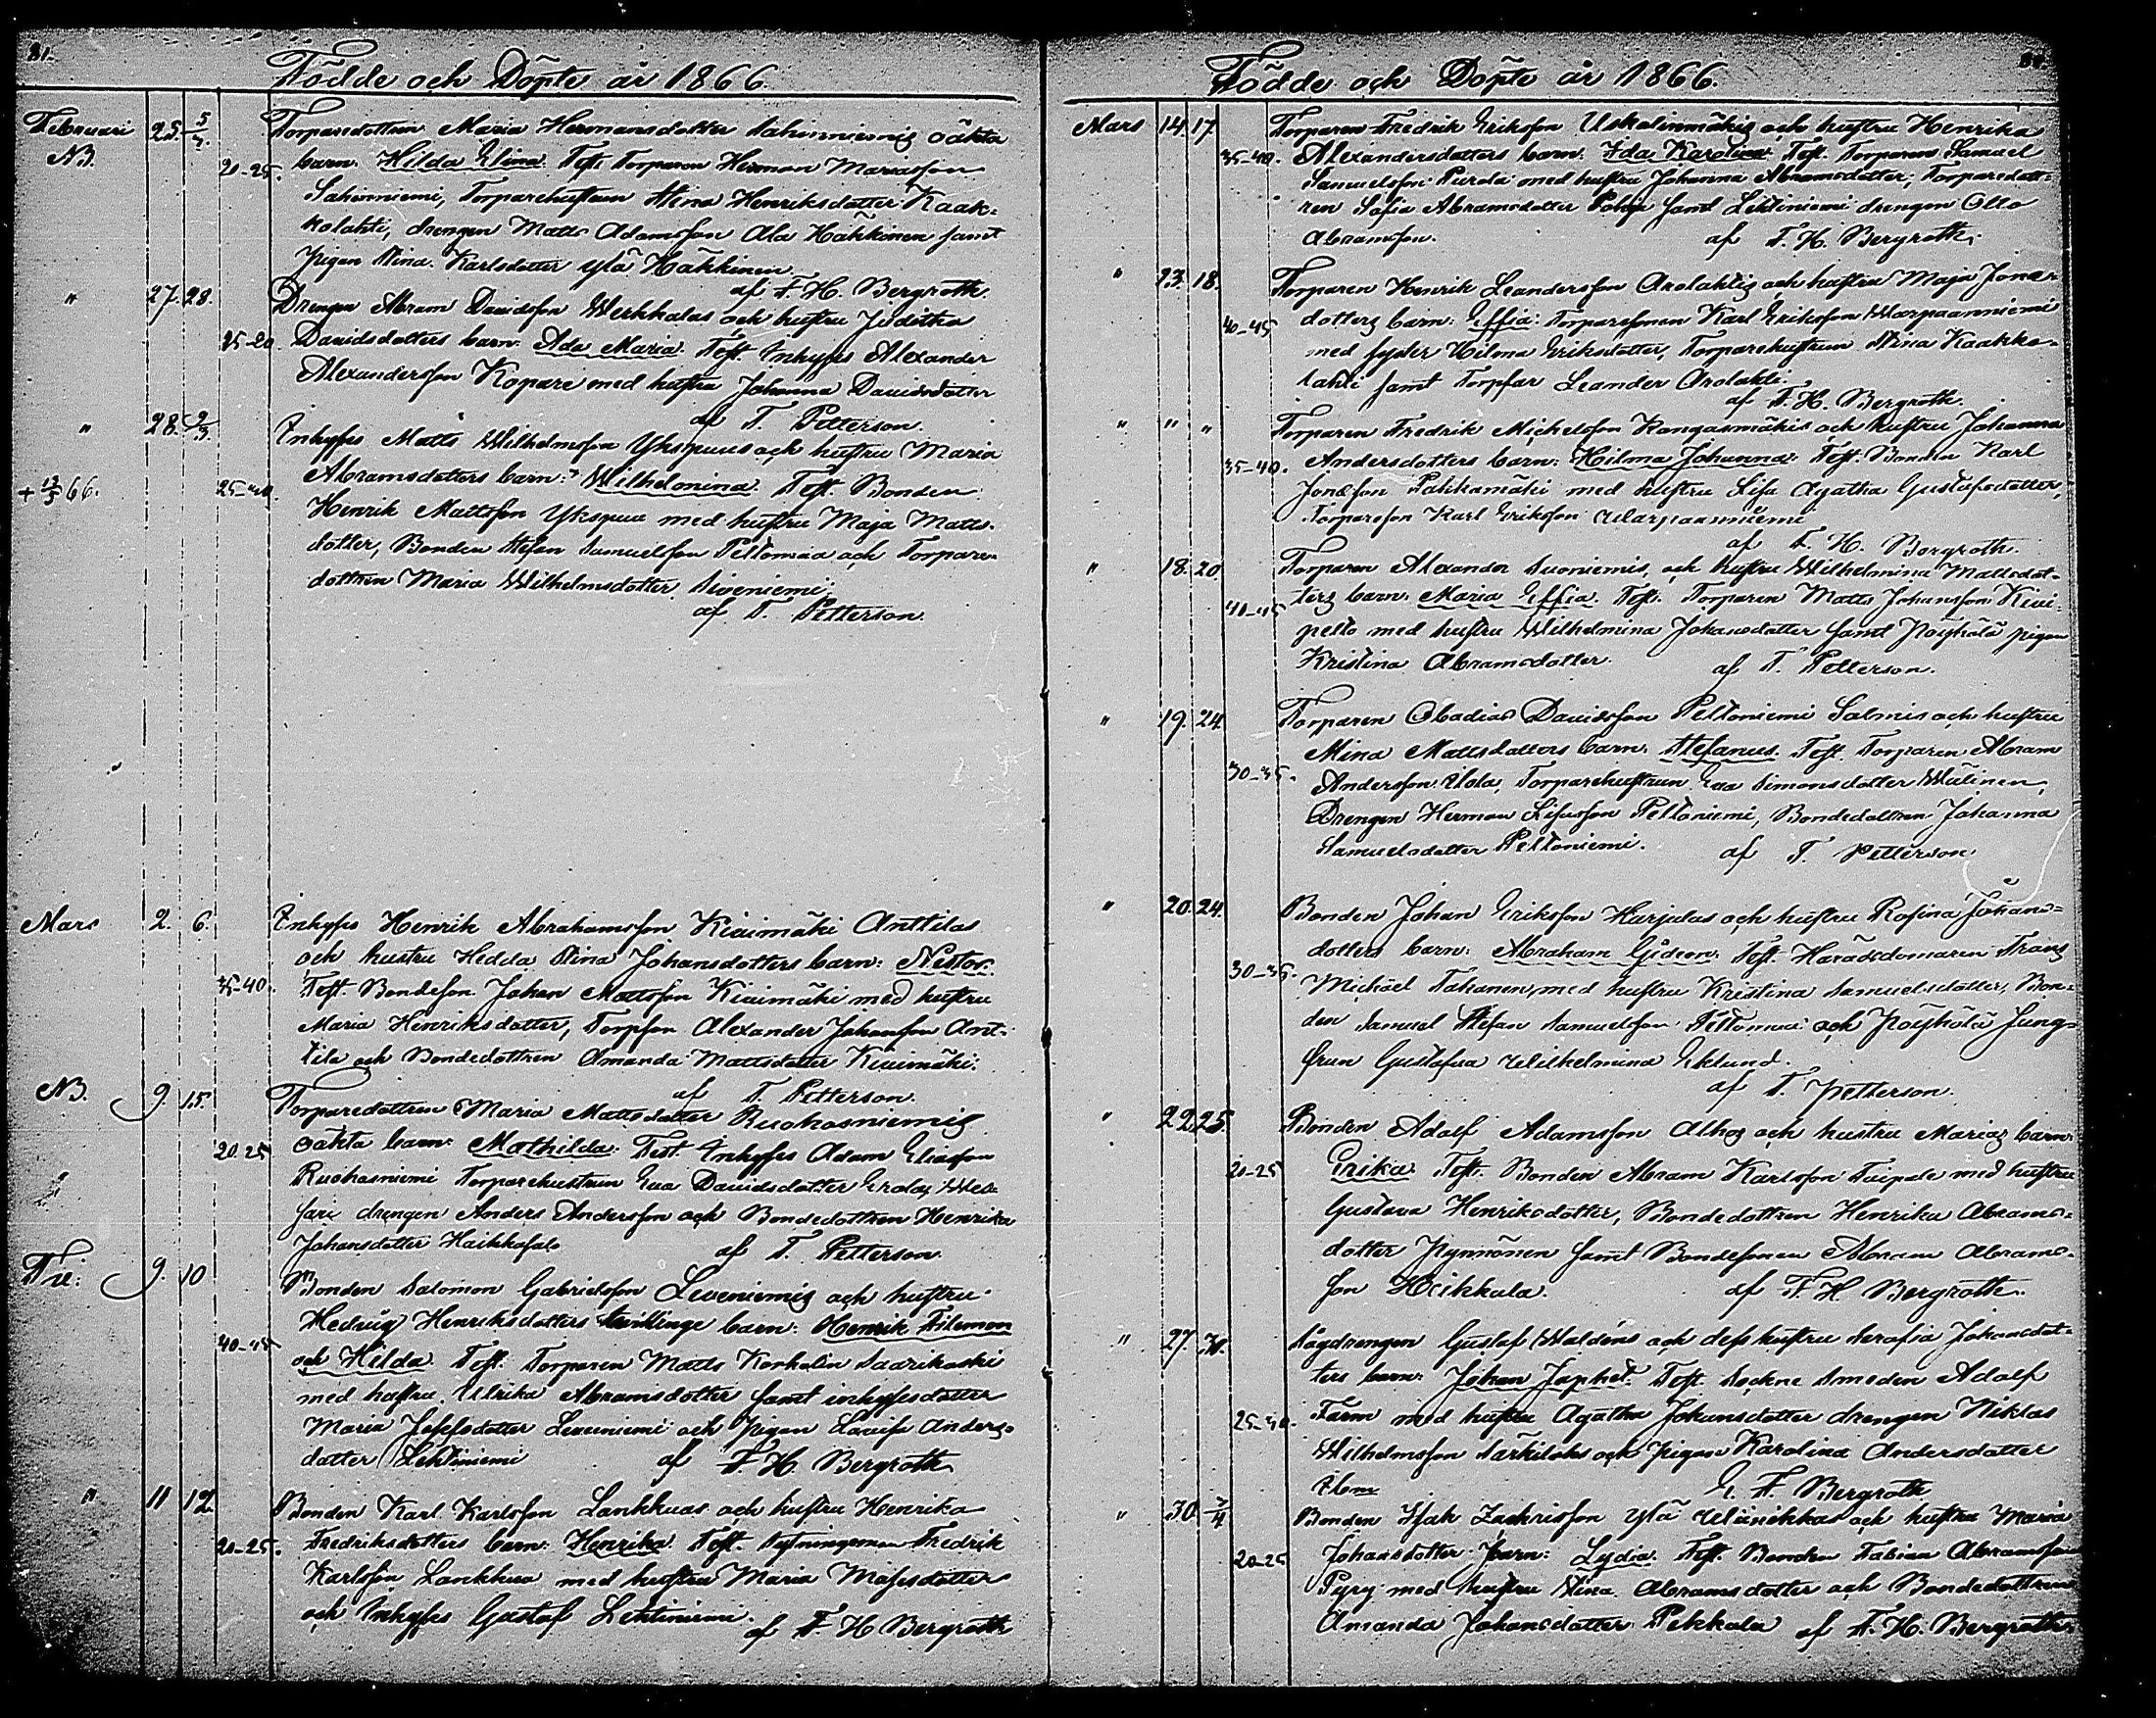 81.
Födde och Döpte år 1866.
Februari 25. 5/4. Torparedottren Maria Hermansdotter Sahinniemis oäkta
NB. 20-25. barn: Hilda Elina. Test. Torparen Herman Mariasson
Sahinniemi, Torparehustrun Stina Henriksdotter Kaak-
kolahti, drengen Matts Adamsson Ala Häkkinen samt
pigan Stina Karlsdotter Ylä Häkkinen.
af F. H. Bergroth.
" 27. 28. Drengen Abram Davidsson Werkkalas och hustru Juditha
25-20. Davidsdotters barn: Ada Maria. Test. Inhyses Alexander
Alexandersson Kopare med hustru Johanna Davidsdotter
af T. Petterson.
" 28. 2/3 Inhyses Matts Wilhelmsson Ykspuus och hustru Maria
Abramsdotters barn: Wilhelmina. Test. Bonden
+ 12/5 66. Henrik Mattsson Ykspuu med hustru Maja Matts-
dotter, Bonden Stefan Samuelsson Peltomaa och Torpare-
dottren Maria Wilhelmsdotter Siveniemi.
af T. Petterson.
Mars 2. 6. Inhyses Henrik Abrahamsson Kivimäki Anttilas
och hustru Hedda Stina Johansdotters barn: Nestor.
35-40. Test. Bondeson Johan Mattsson Kivimäki med hustru
Maria Henriksdotter, Torpson Alexander Johansson Ant-
tila och Bondedottren Amanda Mattsdotter Kivimäki.
af T. Petterson.
NB. 9. 15. Torparedottren Maria Mattsdotter Ruohoniemis
20-25 oäkta barn: Mathilda. Test. Inhyses Adam Eliasson
Ruohoniemi Torparehustrun Eva Davidsdotter
drengen Anders Andersson och Bondedottren Henrika
Johansdotter
af T. Petterson.
9. 10 Bonden Salomon Gabrielsson Leveniemis och hustru
Hedvig Henriksdotters tvillinge barn: Henrik Filemon
40-45 och Hilda. Test. Torparen Matts Korkalin Saarikoski
med hustru Ulrika Abramsdotter samt inhysesdotter
Maria Josefsdotter Leveniemi och pigan Lovisa Anders-
dotter Lehtiniemi
af F. H. Bergroth
" 11 12 Bonden Karl Karlsson Lankkuas och hustru Henrika
20-25. Fredriksdotters barn: Henrika. Test. Sytningsman Fredrik
Karlsson Lankkua med hustru Maria Mosisdotter
och Inhyses Gustaf Lehtiniemi.
af F. H. Bergroth
Födde och Döpte år 1866.
Mars 14. 17. Torparen Fredrik Eriksson Uskalinmäkis och hustru Henrika
35-40. Alexandersdotters barn: Ida Karolina. Test. Torparen Samuel
Samuelsson Purola med hustru Johanna Abramsdotter, Torparedott-
ren Sofia Abramsdotter samt Lehtiniemi drengen Otto
Abramsson.
af F. H. Bergroth.
" 13. 18. Torparen Henrik Leandersson Arolahtis och hustru Maja Jonæ-
40-45 dotters barn: Effia. Torparesonen Karl Eriksson Warpaanniemi
med syster Hilma Eriksdotter, Torparehustrun Stina Kaakko-
lahti samt Torpfar Leander Arolahti.
af F. H. Bergroth.
" " " Torparen Fredrik Michelsson Kangasmäkis och hustru Johanna
35-40. Andersdotters barn: Hilma Johanna. Test. Bonden Karl
Jonæson Pahkamäki med hustru Lisa Agatha Gustafsdotter,
Torpareson Karl Eriksson Warpaanniemi
af F. H. Bergroth.
" 18. 20. Torparen Alexander Suoniemis och hustru Wilhelmina Mattsdot-
40-45 ters barn: Maria Effia. Test. Torparen Matts Johansson Kivi-
pelto med hustru Wilhelmina Johansdotter samt Pöyhölä pigan
Kristina Abramsdotter.
af T. Petterson.
" 19. 24. Torparen Obadias Davidsson Peltoniemi Salmis och hustru
Mina Mattsdotters barn: Stefanus. Test. Torparen Abram
30-35. Andersson Uola, Torparehustrun Eva Simonsdotter Wiilinen,
Drengen Herman Lisasson Peltoniemi, Bondedottren Johanna
Samuelsdotter Peltoniemi.
af T. Petterson
" 20. 24. Bonden Johan Eriksson Harjulas och hustru Rosina Johans-
dotters barn: Abraham Gideon. Test. Häradsdomaren Frans
30-35. Michäel Tahanen med hustru Kristina Samuelsdotter, Bon-
den Samuel Stefan Samuelsson Peltomaa och Pöyhölä Jung-
frun Gustafva Wilhelmina Eklund.
af T. Petterson.
" 22. 25. Bonden Adolf Adamsson Alhos och hustru Marias barn:
20-25 Erika. Test. Bonden Abram Karlsson Taipale med hustru
Gustava Henriksdotter, Bondedottren Henrika Abrams-
dotter Pynnönen samt Bondesonen Abram Abrams-
son Heikkula.
af F. H. Bergroth.
" 27. 30. Sågdrengen Gustaf Waldéns och dess hustru Serafia Johansdot-
ters barn: Johan Japhet. Test. Sockne Smeden Adolf
25-30. Farm med hustru Agatha Johansdotter drengen Niklas
Wilhelmsson Särkilaks och pigan Karolina Andersdotter
Flem
E. F. Bergroth
" 30. 2/4 Bonden Isak Zachrisson Ylä Wiinikkas och hustru Maria
20-25 Johansdotter barn: Lydia. Test. Bonden Fabian Abramsson
Pyry med hustru Stina Abramsdotter och Bondedottren
Amanda Johansdotter Pekkala af F. H. Bergroth.